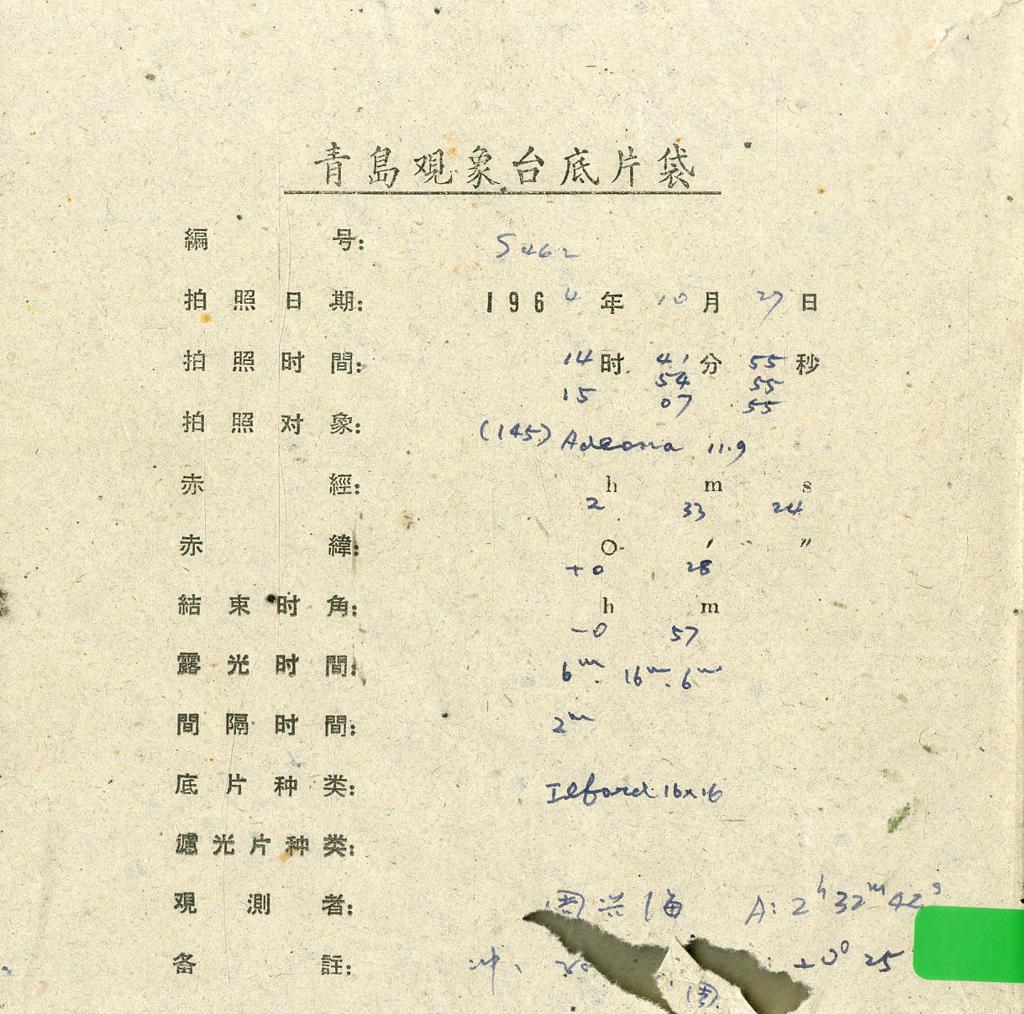 青島观象台底片袋
編号: S462
拍照日期: 1964年10月27日
拍照时間: 14时41分55秒
54 55
15 07 55
拍照对象: (145) Adeona 11.9
赤經: h m s
2 33 24
赤緯: O ′ ″
+0 28
結束时角: h m
-0 57
露光时間: 6m. 16m. 6m
間隔时間: 2m
底片种类: Ilford 16×16
濾光片种类:
观測者: 周兴海 A: 2h 32m 42s
备註: 冲、 +0° 25
周